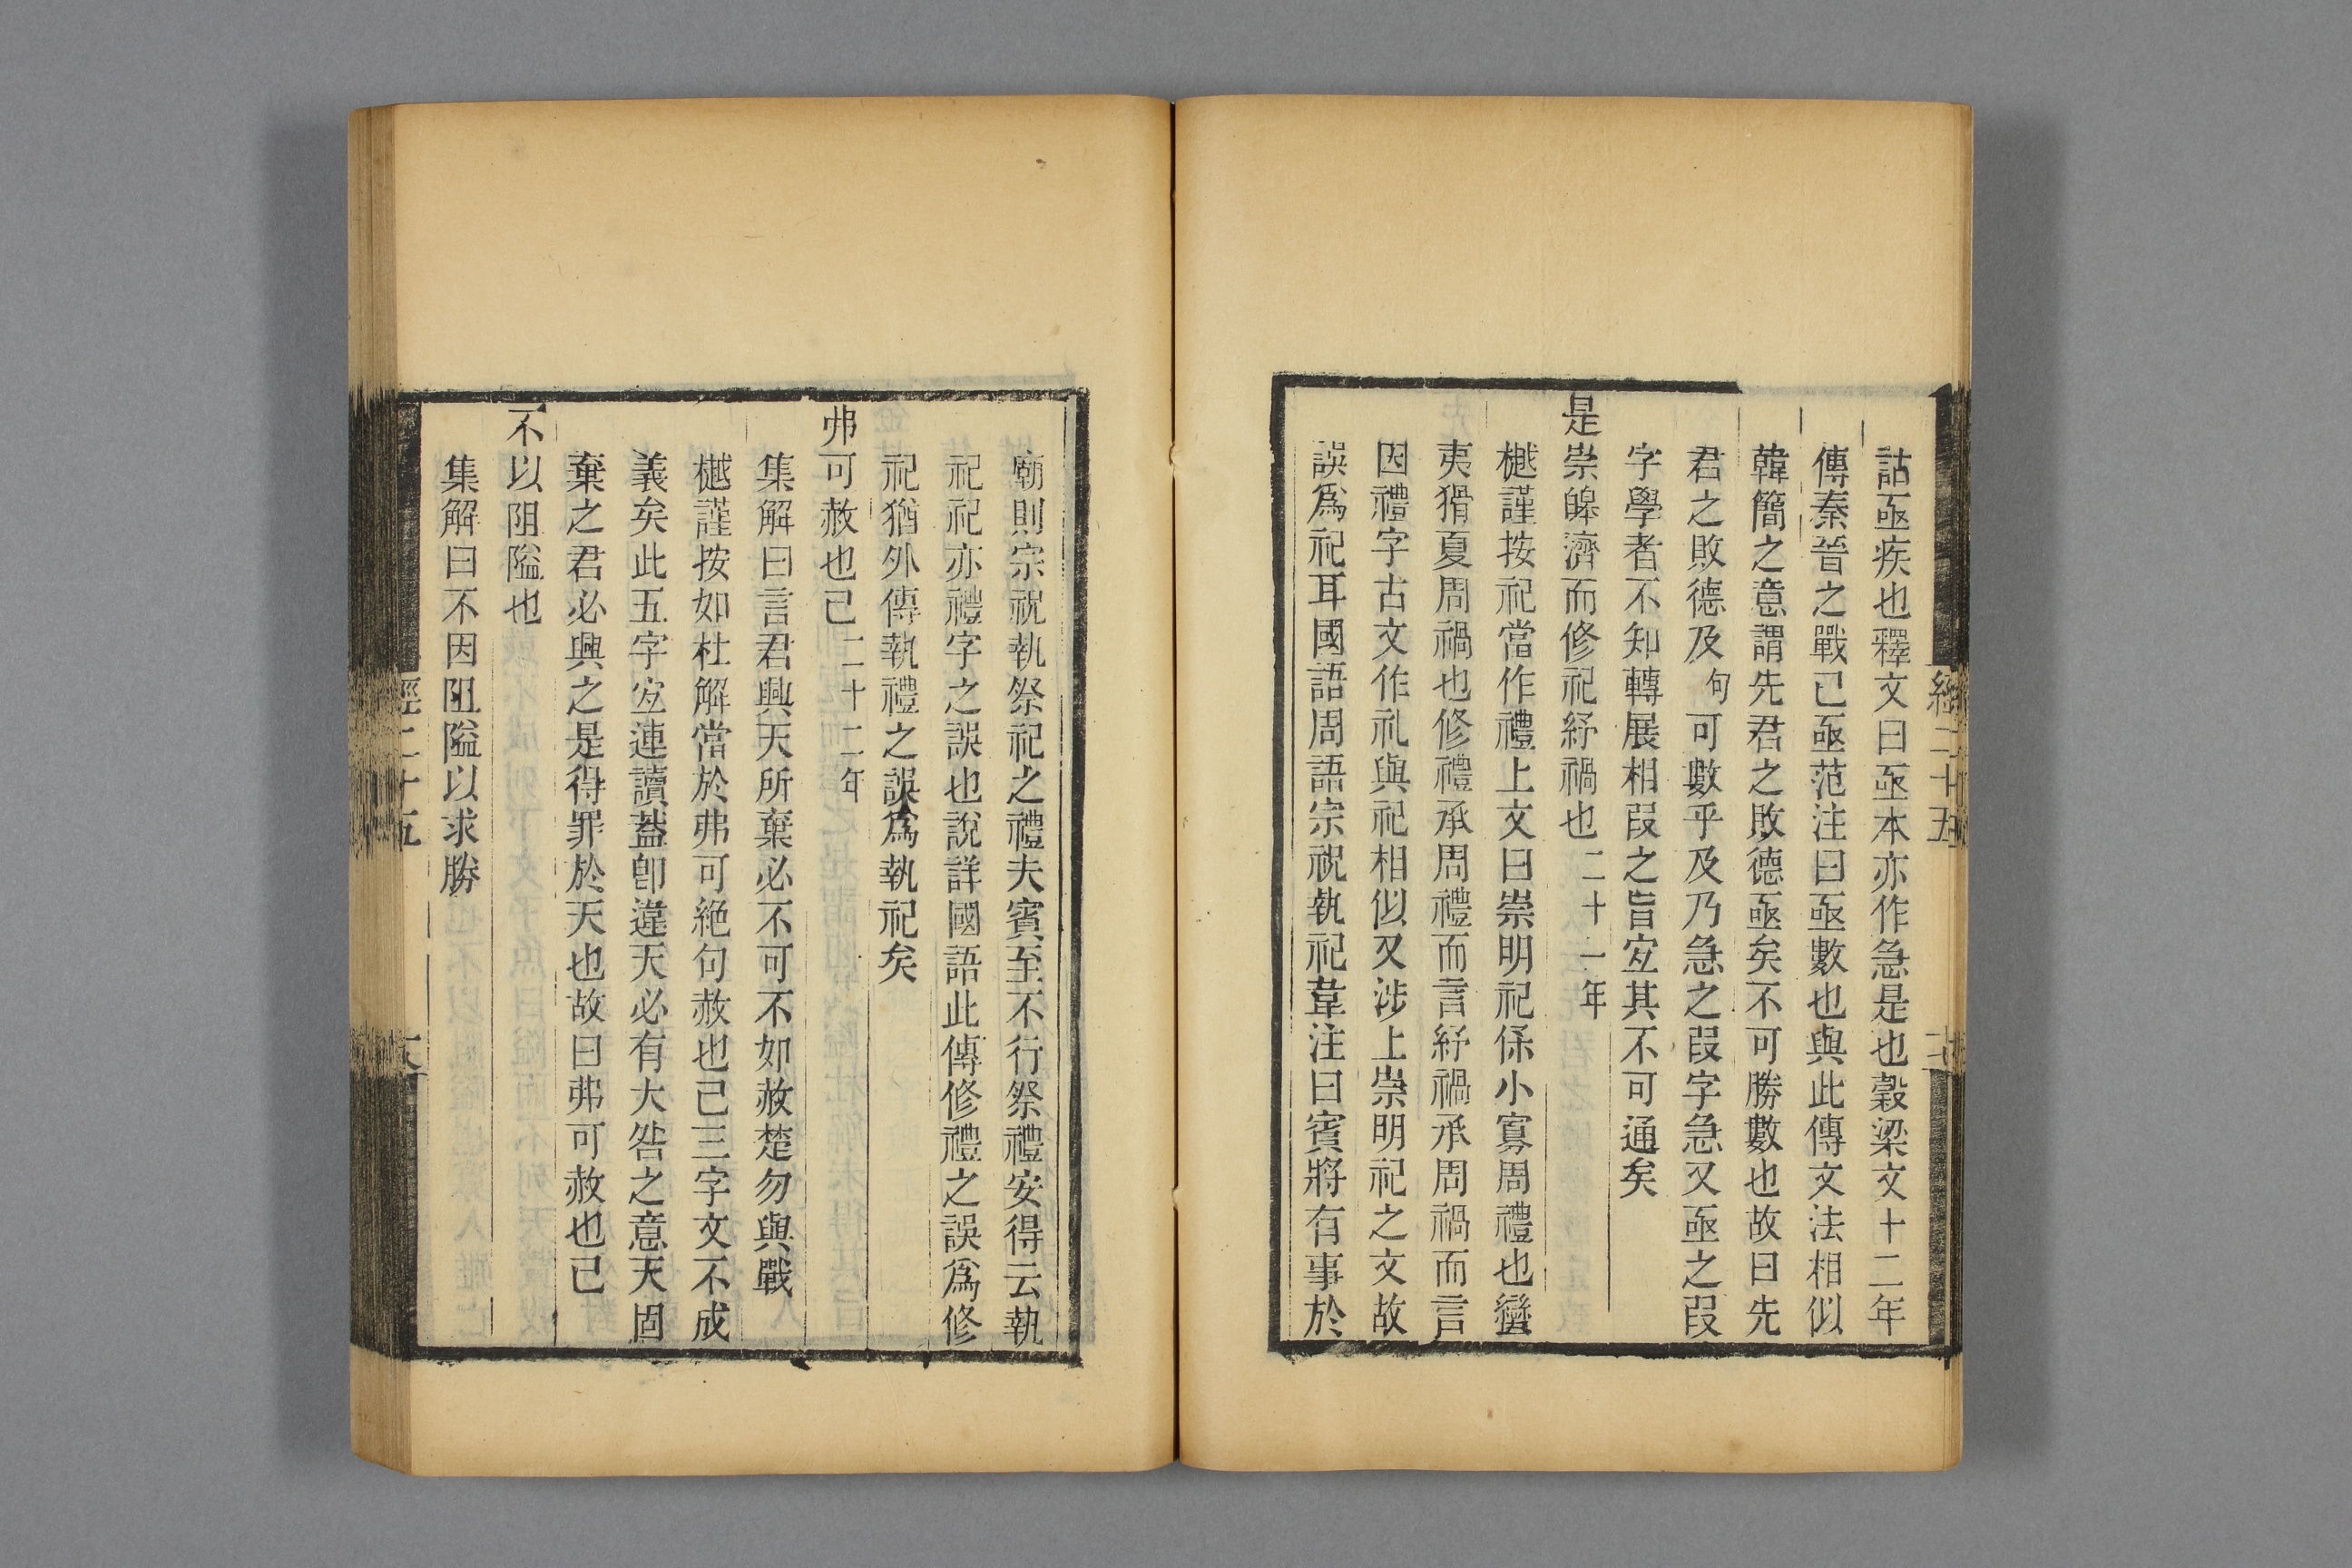 詁亟疾也釋文曰亟本亦作急是也穀梁文十二年
傳秦晉之戰已亟范注曰亟數也與此傳文法相似
韓簡之意謂先君之敗德亟矣不可勝數也故曰先
君之敗德及句可數乎及乃急之叚字急又亟之叚
字學者不知轉展相叚之旨宐其不可通矣
是崇皞濟而修祀紓禍也二十一年
樾謹按祀當作禮上文曰崇明祀保小寡周禮也蠻
夷猾夏周禍也修禮承周禮而言紓禍承周禍而言
因禮字古文作礼與祀相似又涉上崇明祀之文故
誤爲祀耳國語周語宗祝執祀韋注曰賓將有事於
廟則宗祝執祭祀之禮夫賓至不行祭禮安得云執
祀祀亦禮字之誤也說詳國語此傳修禮之誤爲修
祀猶外傳執禮之誤爲執祀矣
弗可赦也已二十二年
集解曰言君興天所棄必不可不如赦楚勿與戰
樾謹按如杜解當於弗可絶句赦也已三字文不成
義矣此五字宐連讀葢卽違天必有大咎之意天固
棄之君必興之是得罪於天也故曰弗可赦也已
不以阻隘也
集解曰不因阻隘以求勝
經二十五
經二十五